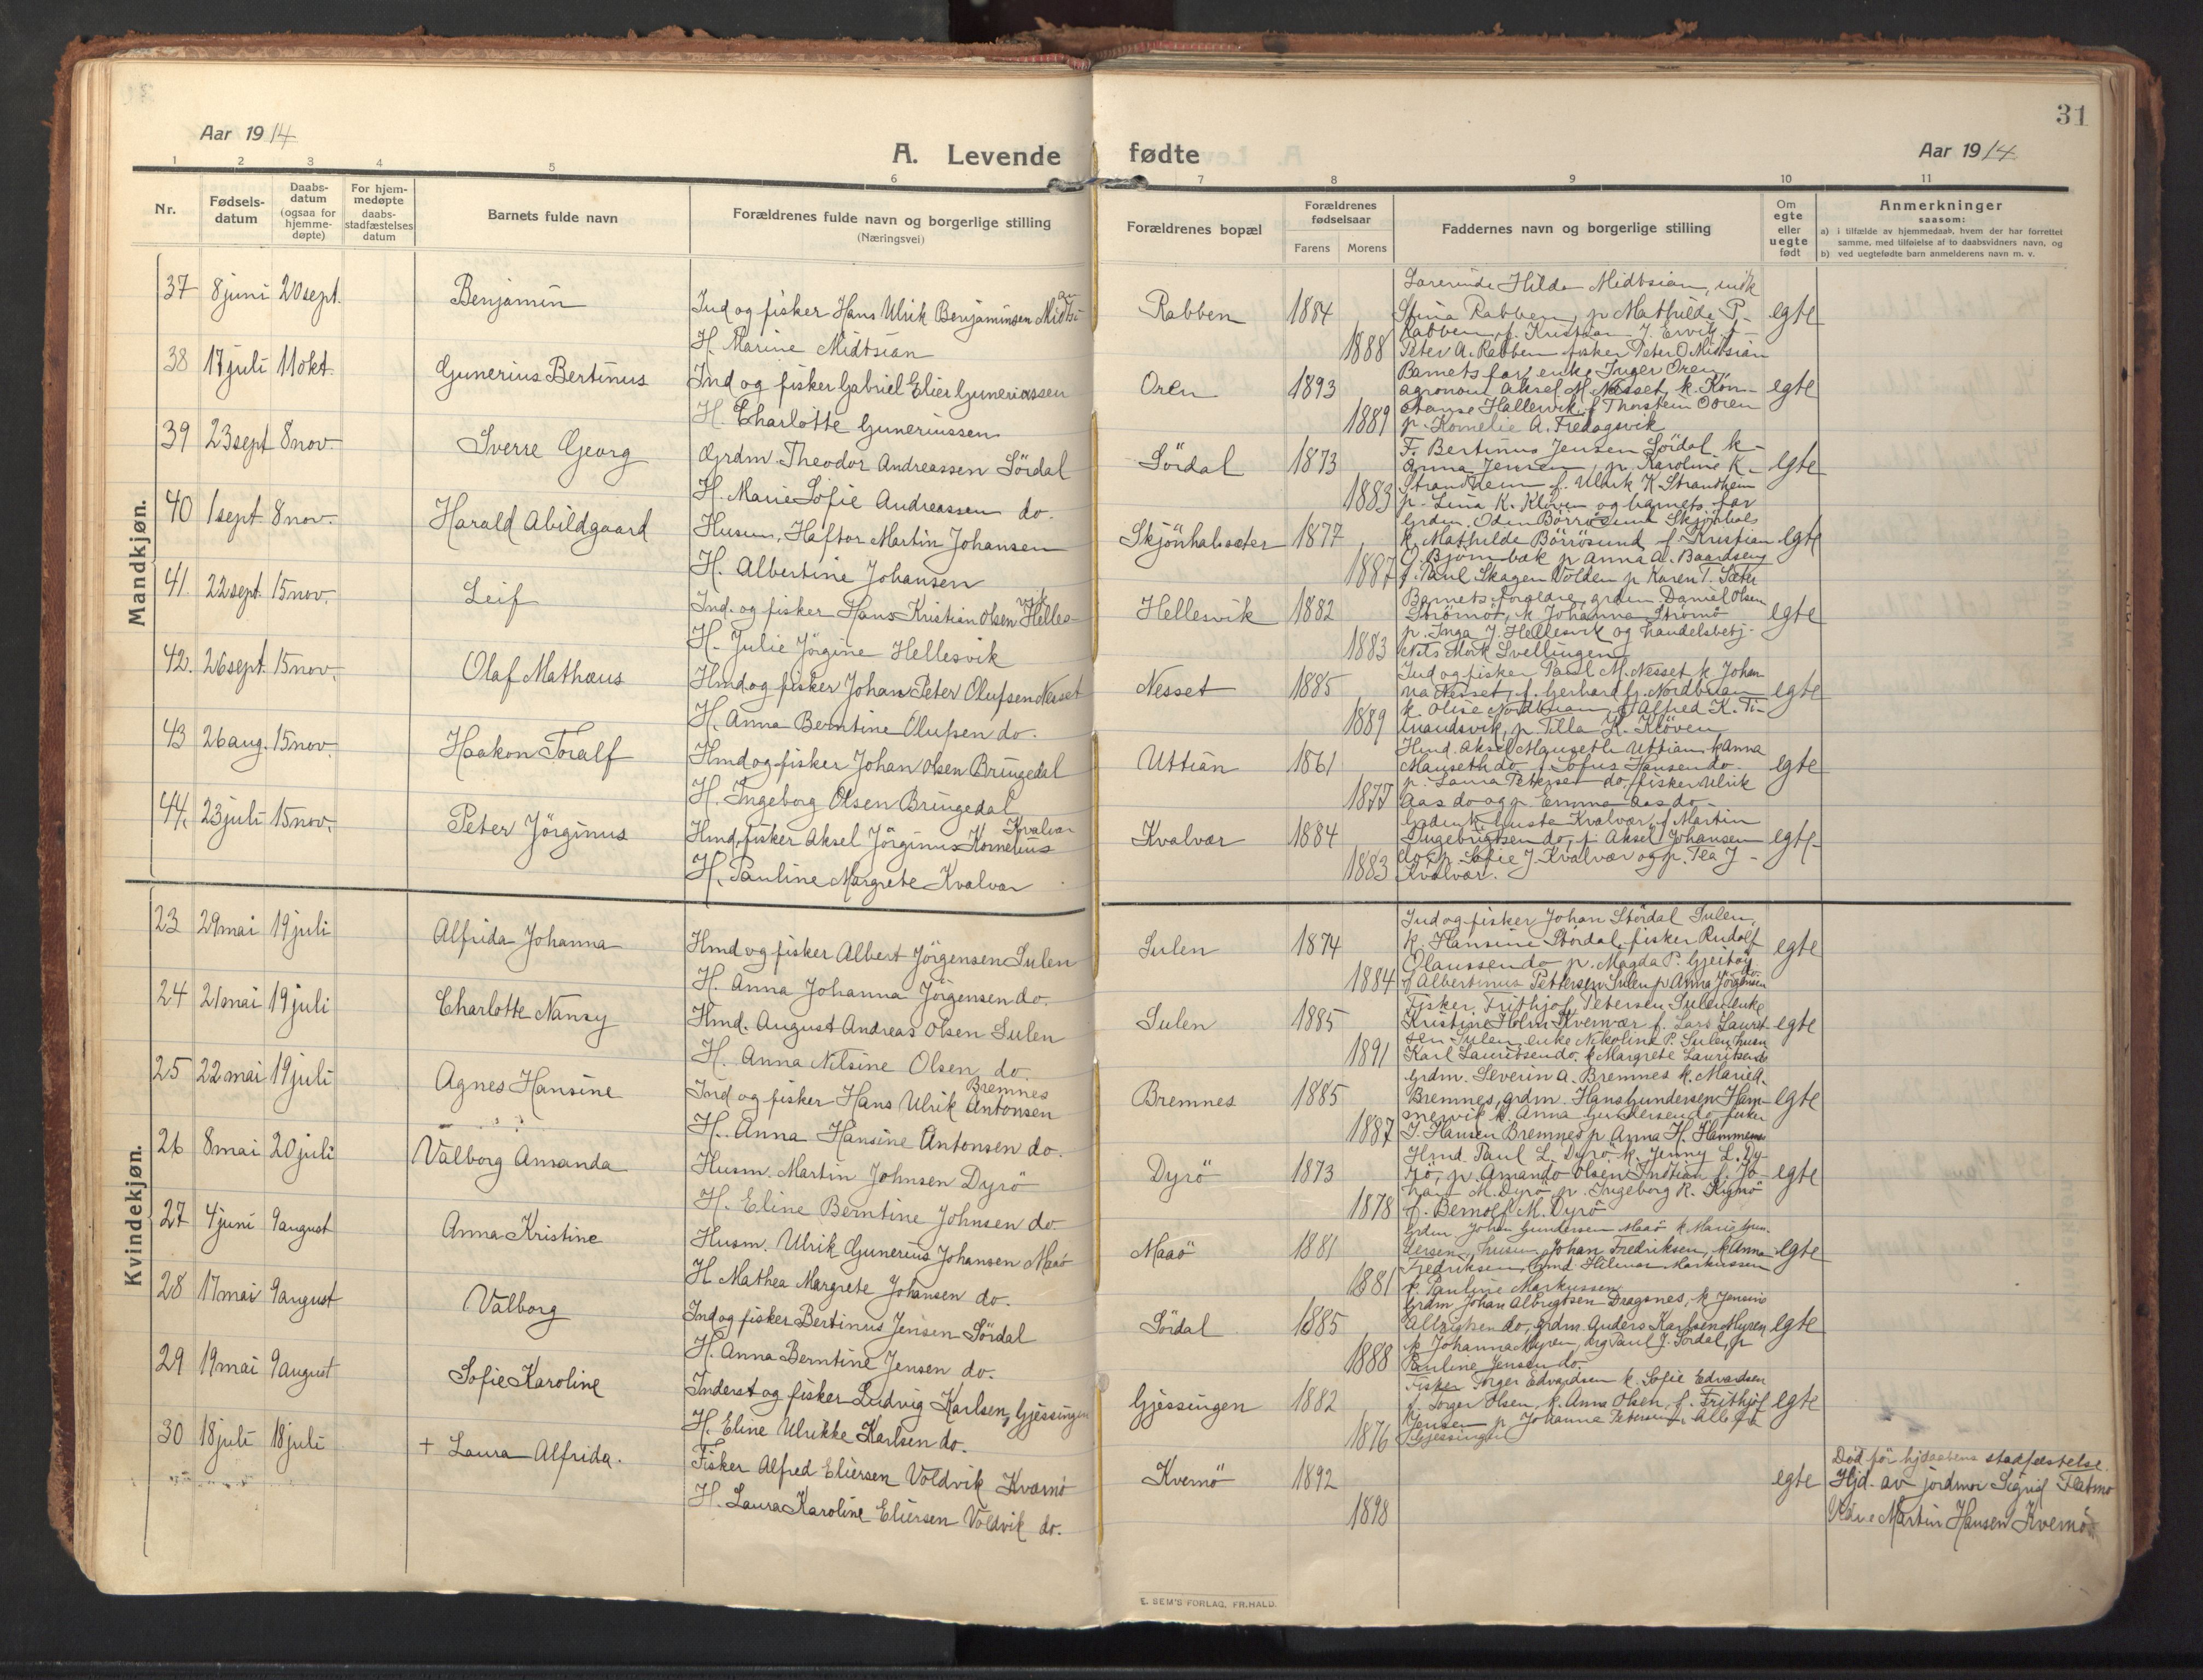 31
Aar 1914
A. Levende fødte
Aar 1914
1 2 3 4 5 6 7 8 9 10 11
Nr.
Fødsels-
datum
Daabs-
datum
(ogsaa for
hjemme-
døpte)
For hjem-
medøpte
daabs-
stadfæstelses
datum
Barnets fulde navn
Forældrenes fulde navn og borgerlige stilling
(Næringsvei)
Forældrenes bopæl
Forældrenes
fødselsaar
Farens Morens
Faddernes navn og borgerlige stilling
Om
egte
eller
uegte
født
Anmerkninger
saasom:
a) i tilfælde av hjemmedaab, hvem der har forrettet
samme, med tilføielse af to daabsvidners navn, og
b) ved uegtefødte barn anmelderens navn m. v.
Mandkjøn.
37 8 juni 20 sept. Benjamin
Ind og fisker Hans Ulrik Benjaminsen Midtsi-
an
H. Marine Midtsian
Rabben 1884 1888 egte
Hilda Midtsian,
Stina Rabben, p Mathilde P.
Peter A. Rabben fisker Peter O Midtsian
38 17 juli 11 okt. Gunerius Bertinus
Ind og fisker Gabriel Elier Guneriussen
H. Charlotte Guneriussen
Oren 1893 1889 egte
Barnets far, enke Inger Oren
agronom Aksel M. Nesset, k. Kon-
stanse Hallervik f Thorstein Oren
p. Kornelie A. Fredagsvik
39 23 sept 8 nov. Sverre Georg
Grdm. Theodor Andreassen Sördal
H. Marie Sofie Andreassen do.
Sördal 1873 1883 egte
F. Bertinus Jensen Sördal k
Anna Jensen, p. Karoline K.
Strandheim f. Ulrik K. Strandheim
p. Lina K. Klöven og barnets far
40 1 sept 8 nov. Harald Abildgaard
Husm. Haftor Martin Johansen
H. Albertine Johansen
Skjönhalsæter 1877 1887 egte
Grdm. Oden Börrösund Skjönhals
k. Mathilde Börrösund f. Kristian
O Bjørnbek p Anna A. Baardseng
f. Paul Skagen Volden p Karen T. Sæter
41. 22 sept. 15 nov. Leif
Ind. og fisker Hans Kristian Olsen Helles-
vik
H. Julie Jörgine Hellesvik
Hellesvik 1882 1883 egte
Barnets forældre, grdm. Daniel Olsen
Strömö, k Johanna Strömö
p. Inga J. Hellesvik og handelsbetj.
Nils Mörk Svellingen
42. 26 sept. 15 nov. Olaf Mathæus
Hmd og fisker Johan Peter Olufsen Nesset
H. Anna Berntine Olufsen do.
Nesset 1885 1889 egte
Ind og fisker Paul M. Nesset k Johan
na Nesset, f. Gerhard G. Nordbuan
k. Olise Nordbuan, f Alfred K. Ti-
mandsvik, p. Tilla K. Klöven
43 26 aug. 15 nov. Haakon Toralf
Hmd og fisker Johan Olsen Bringedal
H. Ingeborg Olsen Bringedal
Uttian 1861 1877 egte
Hmd. Aksel Mauseth Uttian k Anna
Mauseth do f Sofus Hansen do.
p. Laura Petersen do, fisker Ulrik
Aas do og p. Emma Aas do.
44. 23 juli 15 nov. Peter Jörginus
Hmd, fisker Aksel Jörginus Kornelius
Kvalvær
H. Pauline Margrete Kvalvær
Kvalvær 1884 1883 egte
Guste Kvalvær, f Martin
Ingebrigtsen do, f. Aksel Johansen
do, p. Sofie J Kvalvær og p. Tea J
Kvalvær.
Kvindekjøn.
23 29 mai 19 juli Alfrida Johanna
Hmd og fisker Albert Jörgensen Sulen
H. Anna Johanna Jörgensen do.
Sulen 1874 1884 egte
Ind og fisker Johan Stördal Sulen,
k. Hansine Stördal, fisker Rudolf
Olaussen do p. Magda P. Gjeitöy
f Albertinus Pettersen Sulen p Anna Jörgensen
do.
24 21 mai 19 juli Charlotte Nansy
Hmd. August Andreas Olsen Sulen
H. Anna Nilsine Olsen do.
Sulen 1885 1891 egte
Fisker Frithjof Petersen Sulen enke
Kristine Holm Kvernær f. Lars Laurit-
sen Sulen, enke Nikoline P. Sulen, husm
Karl Lauritsen do. k Margrete Lauritsen do
25 22 mai 19 juli Agnes Hansine
Ind og fisker Hans Ulrik Antonsen
Bremnes
H. Anna Hansine Antonsen do.
Bremnes 1885 1887 egte
Grdm. Severin A. Bremnes k. Marie A.
Bremnes, grdm. Hans Gundersen Ham-
mervik k. Anna Gundersen do fisker
J. Hansen Bremnes p Anna H. Hammerv
26 8 mai 20 juli Valborg Amanda
Husm. Martin Johnsen Dyrö
H. Eline Berntine Johnsen do
Dyrö 1873 1878 egte
Hmd. Paul L. Dyrö k. Jenny L. Dy-
rö, p. Amanda Olsen Indtian f. Jo-
han M. Dyrö p. Ingeborg R.
f. Bernolf M. Dyrö
27 4 juni 9 august Anna Kristine
Husm. Ulrik Gunerius Johansen Maaö
H. Mathea Margrete Johansen do.
Maaö 1881 1881 egte
Grdm Johan Gundersen Maaö k Marie Gun-
dersen, husm. Johan Fredriksen, k Anna
Fredriksen, hmd. Hilmar Markussen
k. Pauline Markussen
28 17 mai 9 august Valborg
Ind og fisker Bertinus Jensen Sördal
H. Anna Berntine Jensen do.
Sördal 1885 1888 egte
Grdm Johan Albrigtsen Dragsnes, k Jensine
Albrigtsen do, grdm. Anders Karlsen Myren
k Johanna Myren, ug Paul J. Sördal, p
Pauline Jensen do.
29 19 mai 9 august Sofie Karoline
Inderst og fisker Ludvig Karlsen, Gjessingen
H. Eline Ulrikke Karlsen do.
Gjessingen 1882 1876 egte
Fisker Torger Edvardsen k. Sofie Edvardsen
f. Torger Olsen, k. Anna Olsen, f. Frithjof
Jensen p Johanna Petersen, Alle fra
Gjessingen
30 18 juli 18 juli + Laura Alfrida.
Fisker Alfred Eliersen Voldvik Kvernö
H. Laura Karoline Eliersen Voldvik do.
Kvernö 1892 1898 egte
Död för hjdaabens stadfæstelse.
Hjd. av jordmor Sigrid Flatmo
Martin Hansen Kvernö
E. SEM'S FORLAG, FR.HALD.